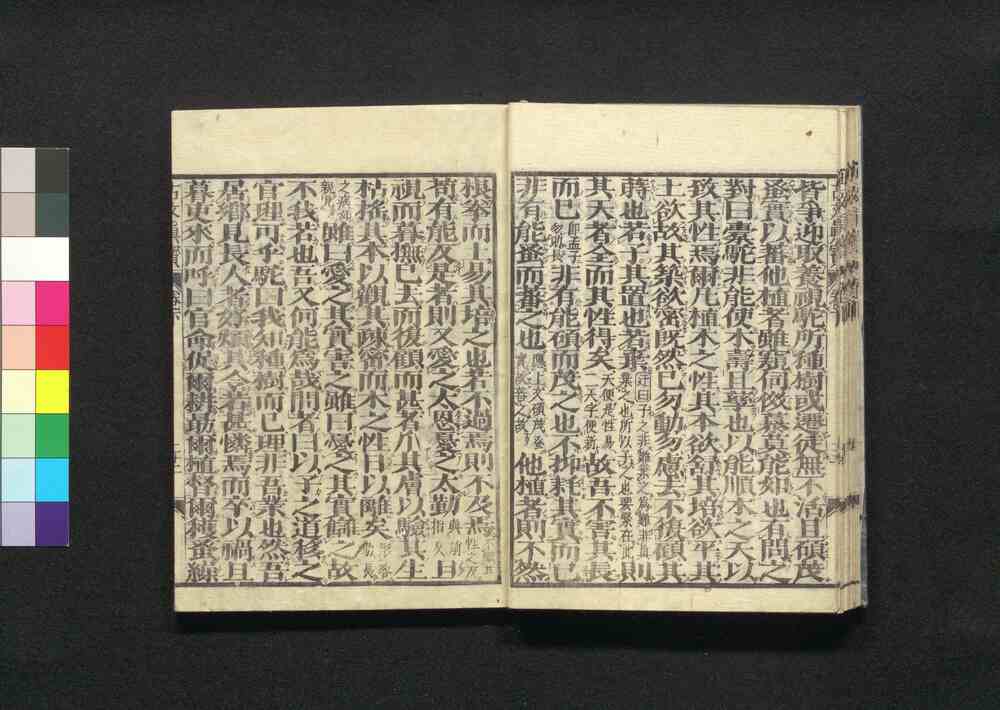 皆爭迎取養視駝所種樹或遷徙無不活且碩茂
蚤實以蕃他植者雖窺伺傚慕莫能如也有問之
對曰橐駝非能使木壽且孳也以能順木之天以
致其性焉爾凡植木之性其本欲舒其培欲平其
土欲故其築欲密既然已勿動勿慮去不復顧其
蒔也若子其置也若棄則
其天者全而其性得矣故吾不害其長
而已非有能碩而茂之也不抑耗其實而已
非有能蚤而蕃之也他種者則不然
根拳而土易其培之也若不過焉則不及焉
苟有能反是者則又愛之太恩憂之太勤旦
視而暮撫已去而復顧而甚者爪其膚以驗其生
枯搖其本以觀其疎密而木之性日以離矣
雖曰愛之其實害之雖曰憂之其實讎之故
不我若也吾又何能爲哉問者曰以子之道移之
官理可乎駝曰我知種樹而已理非吾業也然吾
居鄉見長人者好煩其令若甚憐焉而卒以禍旦
暮吏來而呼曰官命促爾耕勗爾植督爾穫蚤繅